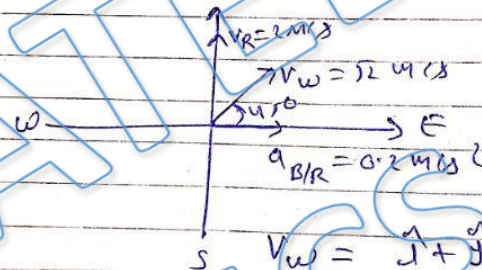 V_R = 2 m/s
V_w = √2 m/s
45°
W E
a_B/R = 0.2 m/s²
S V_w = î + ĵ